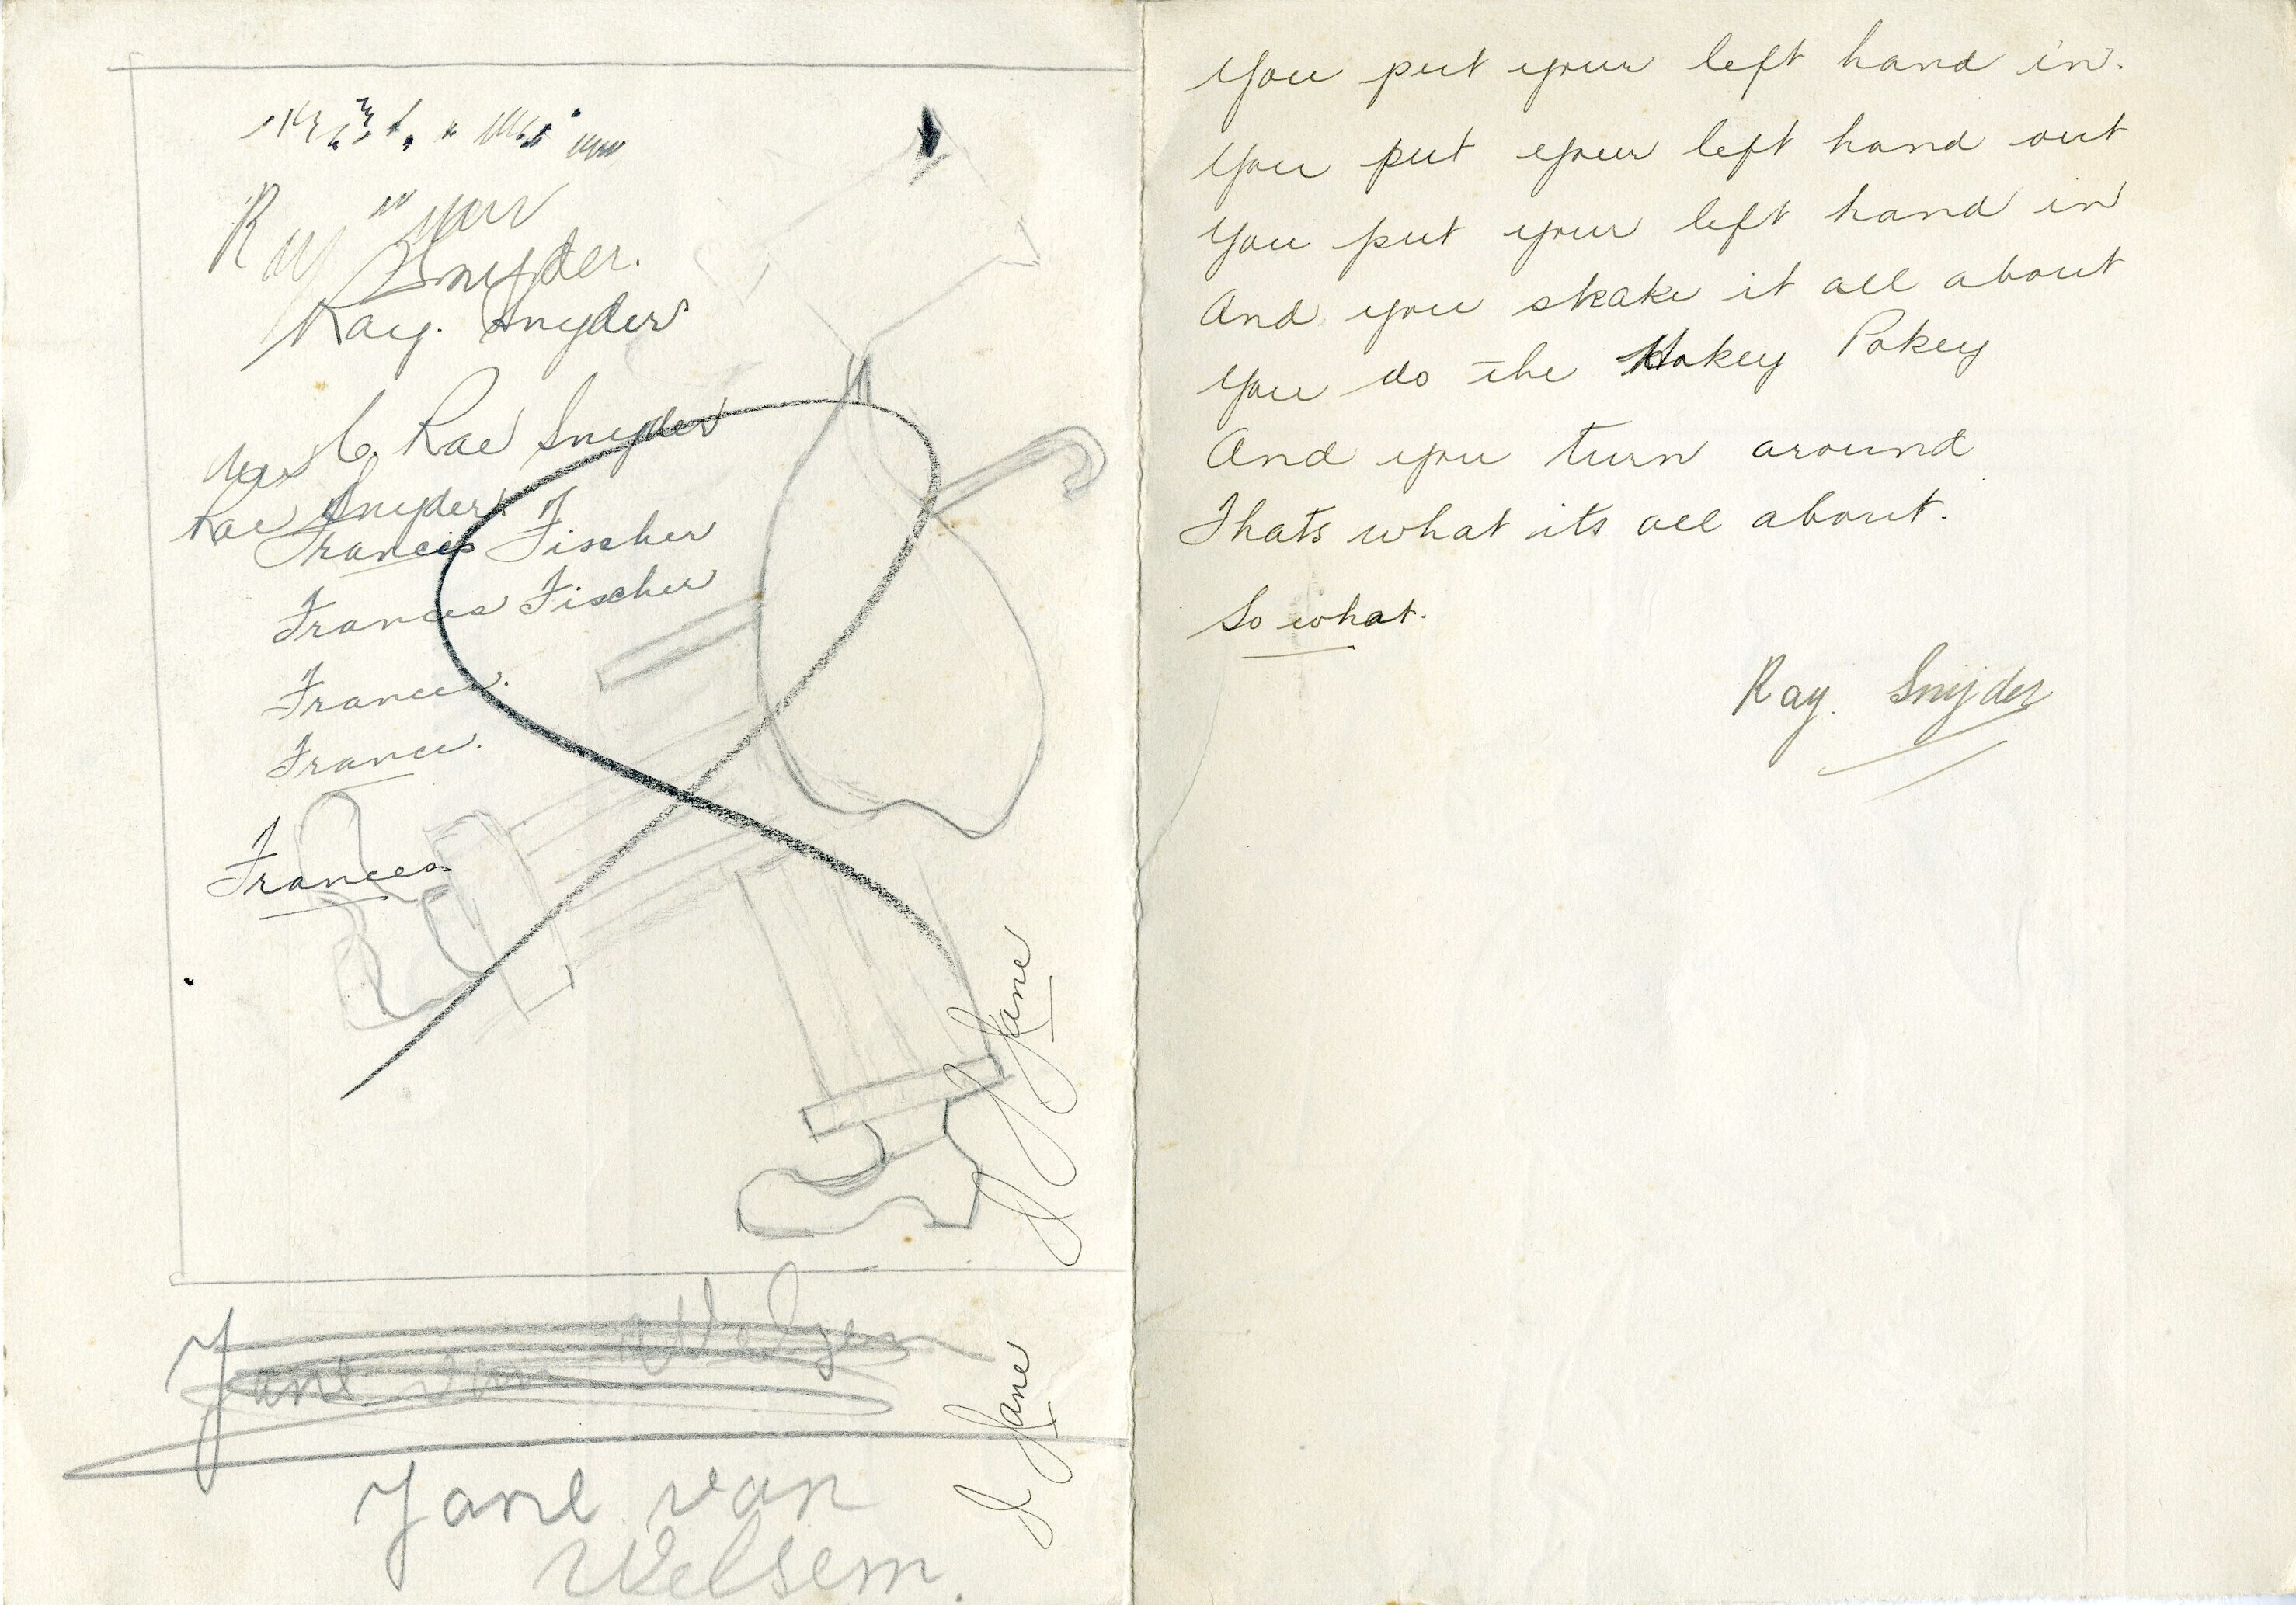 Ray
Snyder.
Ray. Snyder
C. Rae Snyder
Rae Snyder
Francis Fischer
Frances Fischer
Frances.
France.
Frances
J Jane
J Jane
Jane van Welzen
Jane van
Welsem.
You put your left hand in.
You put your left hand out
You put your left hand in
And you skake it all about
You do the Hokey Pokey
And you turn around
Thats what its all about.
So what.
Ray. Snyder